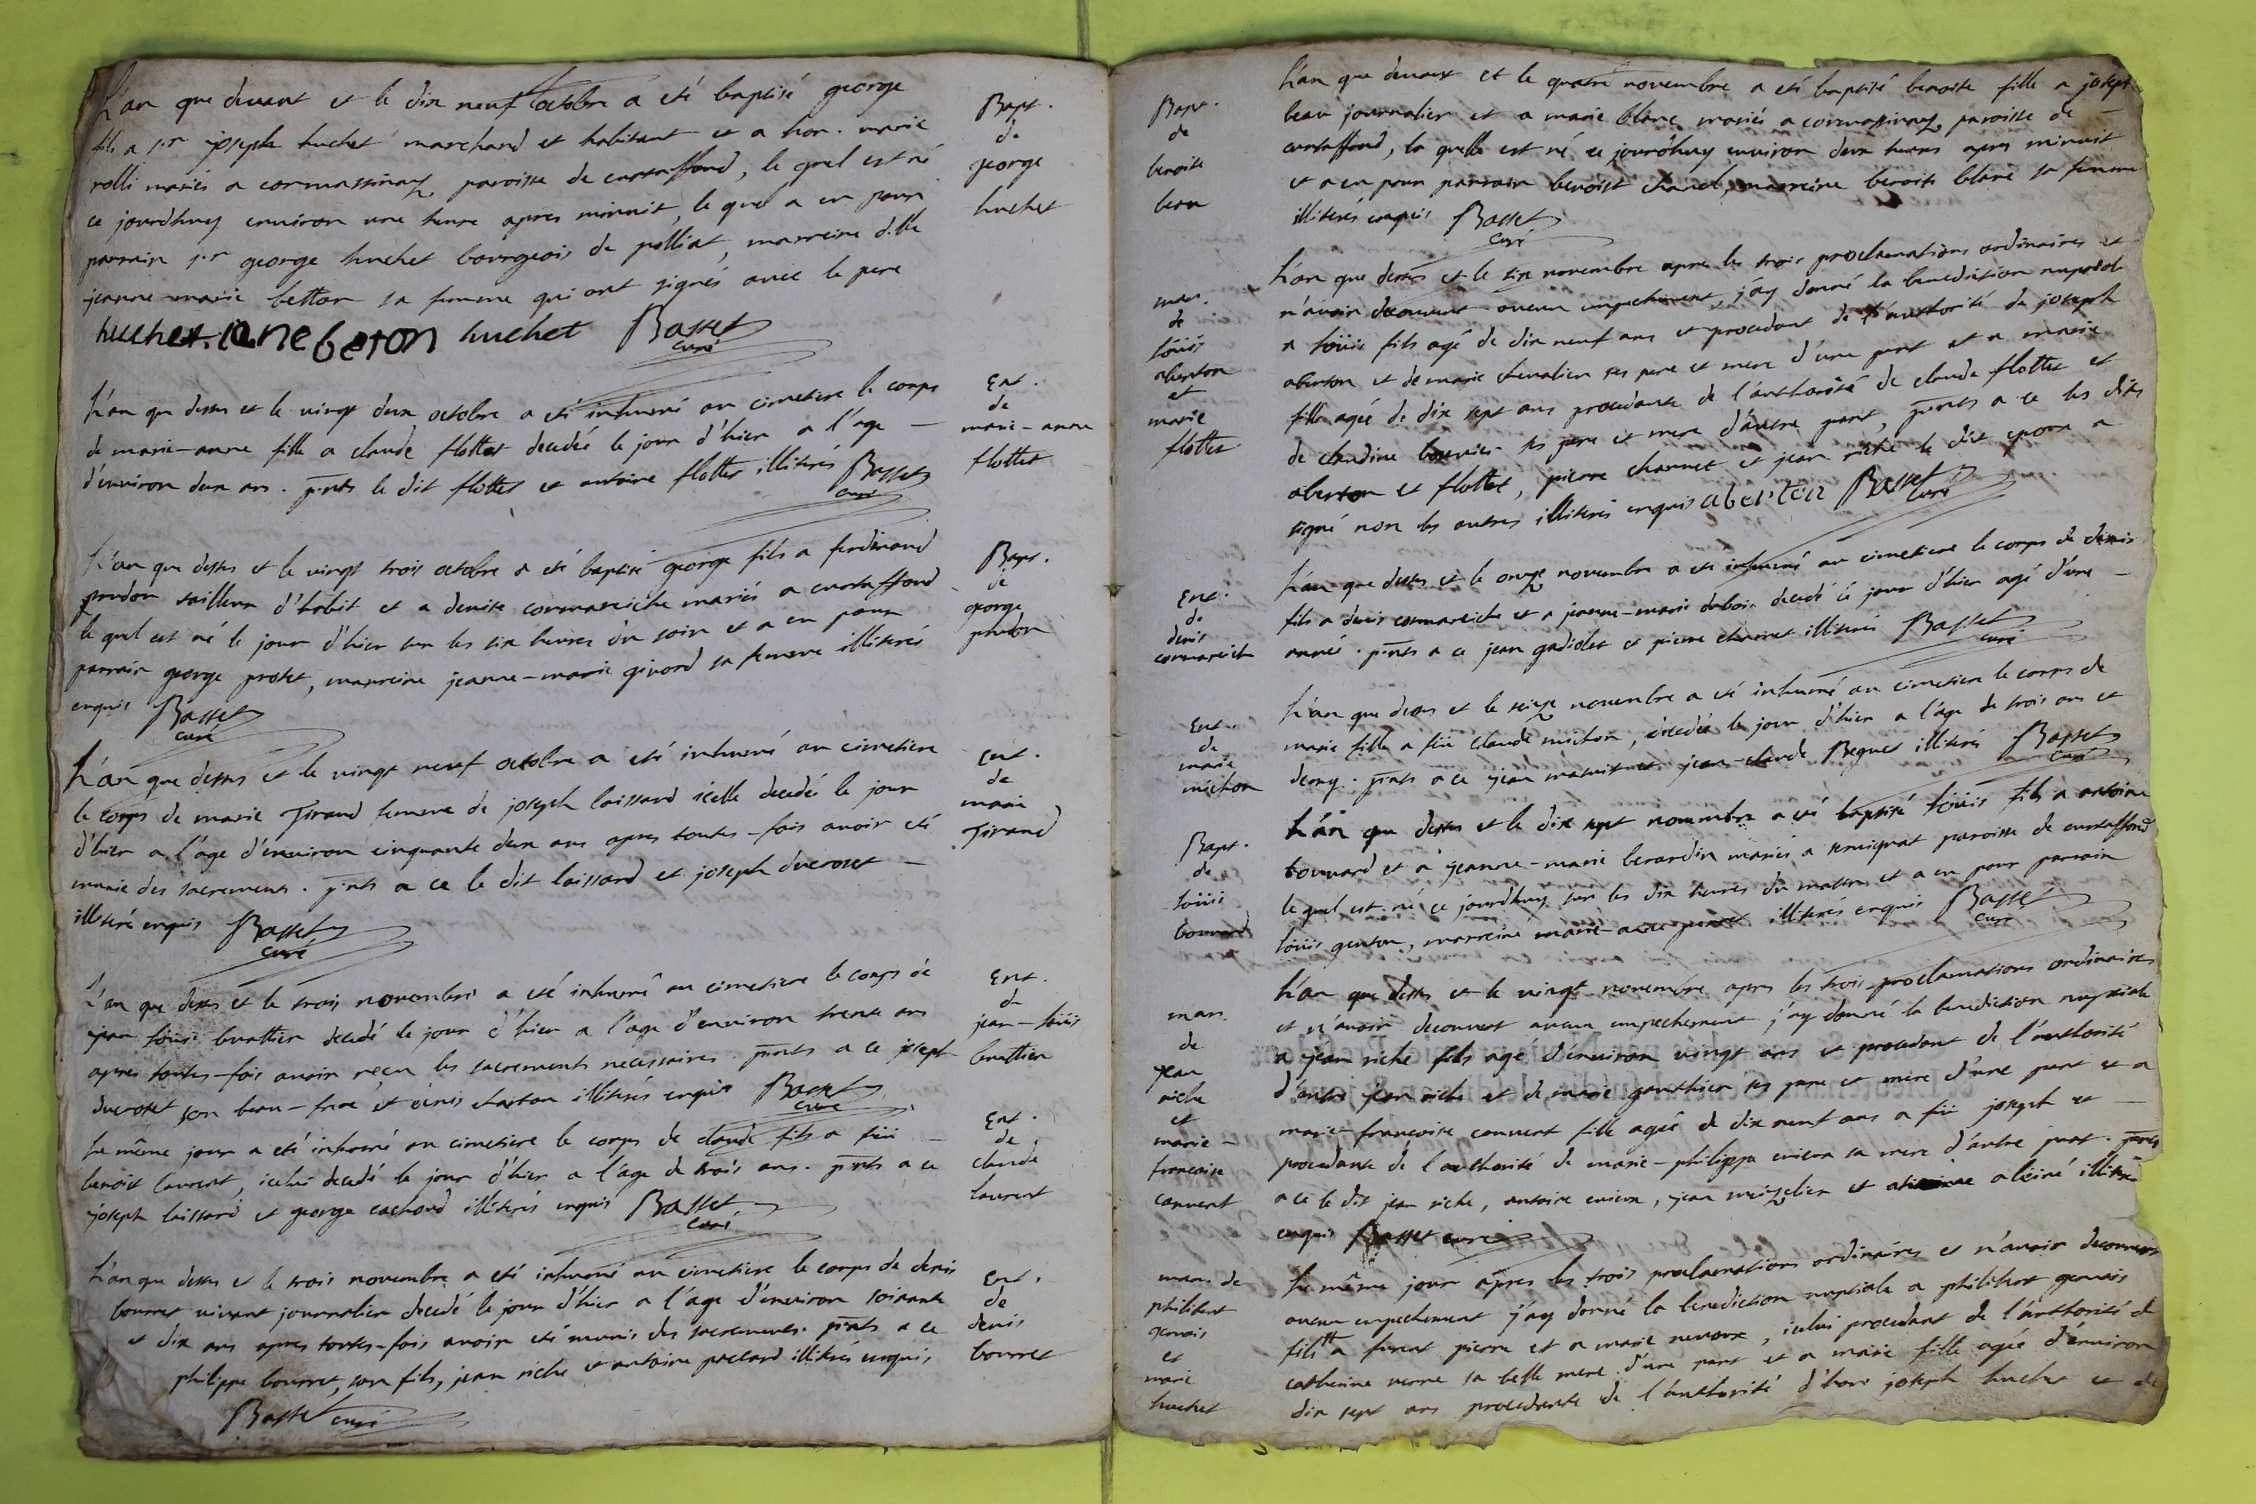 L'an que devant et le dix neuf octobre a eté baptisé george
fils a sr joseph huchet marchand et habitant et a hon. marie
rolli mariés a cormassinay paroisse de curtaffond, le quel est né
ce jourdhuy environ une heure apres minuit, le quel a eu pour
parrain sr george huchet bourgeois de polliat, marreine d.lle
jeanne-marie betton sa femme qui ont signés avec le pere
huchet. iane beton huchet Basset
curé
Bapt.
de
george
huchet
L'an que dessus et le vingt deux octobre a eté inhumé au cimetiere le corps
de marie-anne fille a claude flottet decedée le jour d'hier a l'age
d'environ deux ans. pnts le dit flottet et antoine flottet illiterés Basset
curé
Ent.
de
marie-anne
flottet
L'an que dessus et le vingt trois octobre a eté baptisé george fils a ferdinand
prudon tailleur d'habit et a denise cormareiche mariés a curtaffond
le quel est né le jour d'hier sur les six heures du soir et a eu pour
parrain george protet, marreine jeanne-marie givord sa femme illiterés
enquis Basset
curé
Bapt.
de
george
prudon
L'an que dessus et le vingt neuf octobre a eté inhumé au cimetiere
le corps de marie Tirand femme de joseph laissard icelle decedé le jour
d'hier a l'age d'environ cinquante deux ans apres toutes-fois avoir eté
munie des sacrements. pnts a ce le dit laissard et joseph ducroset
illiteré enquis Basset
curé
Ent.
de
marie
Tirand
L'an que dessus et le trois novembre a eté inhumé au cimetiere le corps de
jean loüis buattier decedé le jour d'hier a l'age d'environ trente ans
apres toutes-fois avoir reçu les sacrements necessaires. pnts a ce joseph
ducroset son beau-frere et denis charton illiterés enquis Basset
curé
Ent.
de
jean-loüis
buattier
Le même jour a eté inhumé au cimetiere le corps de claude fils a feü
benoit laurent, icelui decedé le jour d'hier a l'age de trois ans. pnts a ce
joseph laissard et george cachord illiterés enquis Basset
curé
Ent.
de
claude
laurent
L'an que dessus et le trois novembre a eté inhumé au cimetiere le corps de denis
bourret vivant journalier decedé le jour d'hier a l'age d'environ soixante
et dix ans apres toutes-fois avoir eté munis des sacrements. pnts a ce
philippe bourret, son fils, jean riche et antoine paclard illiterés enquis
Basset curé
Ent.
de
denis
bourret
Bapt.
de
benoite
beau
L'an que devant et le quatre novembre a eté baptisé benoite fille a joseph
beau journalier et a marie blanc mariés a cormassinay paroisse de
curtaffond, la quelle est né ce jourdhuy environ deux heures apres minuit
et a eu pour parrain benoist chanel, marreine benoite blanc sa femme
illiterés enquis Basset
curé
mar.
de
loüis
aberton
et
marie
flottet
L'an que dessus et le six novembre apres les trois proclamations ordinaires et
n'avoir decouvert aucun empechement, j'ay donné la benediction nuptiale
a loüis fils agé de dix neuf ans et procedant de l'authorité de joseph
aberton et de marie chevalier ses pere et mere d'une part et a marie
fille agée de dix sept ans procedante de l'authorité de claude flottet et
de claudine bouvier ses pere et mere d'autre part, pnts a ce les dits
aberton et flottet, pierre charnet et jean riche le dit epoux a
signé non les autres illiterés enquis aberton Basset
curé
Ent.
de
denis
cormareiche
L'an que dessus et le onze novembre a eté inhumé au cimetiere le corps de denis
fils a denis cormareiche et a jeanne-marie dubois decedé le jour d'hier agé d'une
année. pnts a ce jean gadiolet et pierre charnet illiterés Basset
curé
Ent.
de
marie
michon
L'an que dessus et le seize novembre a eté inhumé au cimetiere le corps de
marie fille a feü claude michon, decedée le jour d'hier a l'age de trois ans et
demy. pnts a ce jean et jean-claude Peguet illiterés Basset
curé
Bapt.
de
loüis
bouvard
L'an que dessus et le dix sept novembre a eté baptisé loüis fils a antoine
bouvard et a jeanne-marie berardin mariés a semignat paroisse de curtaffond
le quel est né ce jourdhuy sur les dix heures du matin et a eu pour parrain
loüis genton, marreine marie-anne perret illiterés enquis Basset
curé
mar.
de
jean
riche
et
marie-
francoise
convert
L'an que dessus et le vingt novembre apres les trois proclamations ordinaires
et n'avoir decouvert aucun empechement j'ay donné la benediction nuptiale
a jean riche fils agé d'environ vingt ans et procedant de l'authorité
d'autre jean riche et de marie gauthier ses pere et mere d'une part et a
marie-francoise convert fille agée de dix neuf ans a feü joseph et
procedante de l'authorité de marie-philippe enieux sa mere d'autre part. pnts
a ce le dit jean riche, antoine enieux, jean et illiterés
enquis Basset curé
mar. de
philibert
gervais
et
marie
huchet
Le même jour apres les trois proclamations ordinaires et n'avoir decouvert
aucun empechement j'ay donné la benediction nuptiale a philibert gervais
fils a furent pierre et a marie nevoux, icelui procedant de l'authorité de
catherine verne sa belle mere d'une part et a marie fille agée d'environ
dix sept ans procedante de l'authorité d'hon. joseph huchet et de